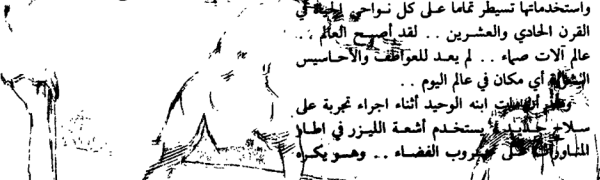 واستخدماتها تسيطر تماما على كل نواحي الحياة في
القرن الحادي والعشرين .. لقد أصبح العالم ..
عالم آلات صماء .. لم يعد للعواطف والأحاسيس
أي مكان في عالم اليوم ..
ابنه الوحيد أثناء اجراء تجربة على
سلاح جديد يستخدم أشعة الليزر في اطار
المناورات على حروب الفضاء .. وهو يكره